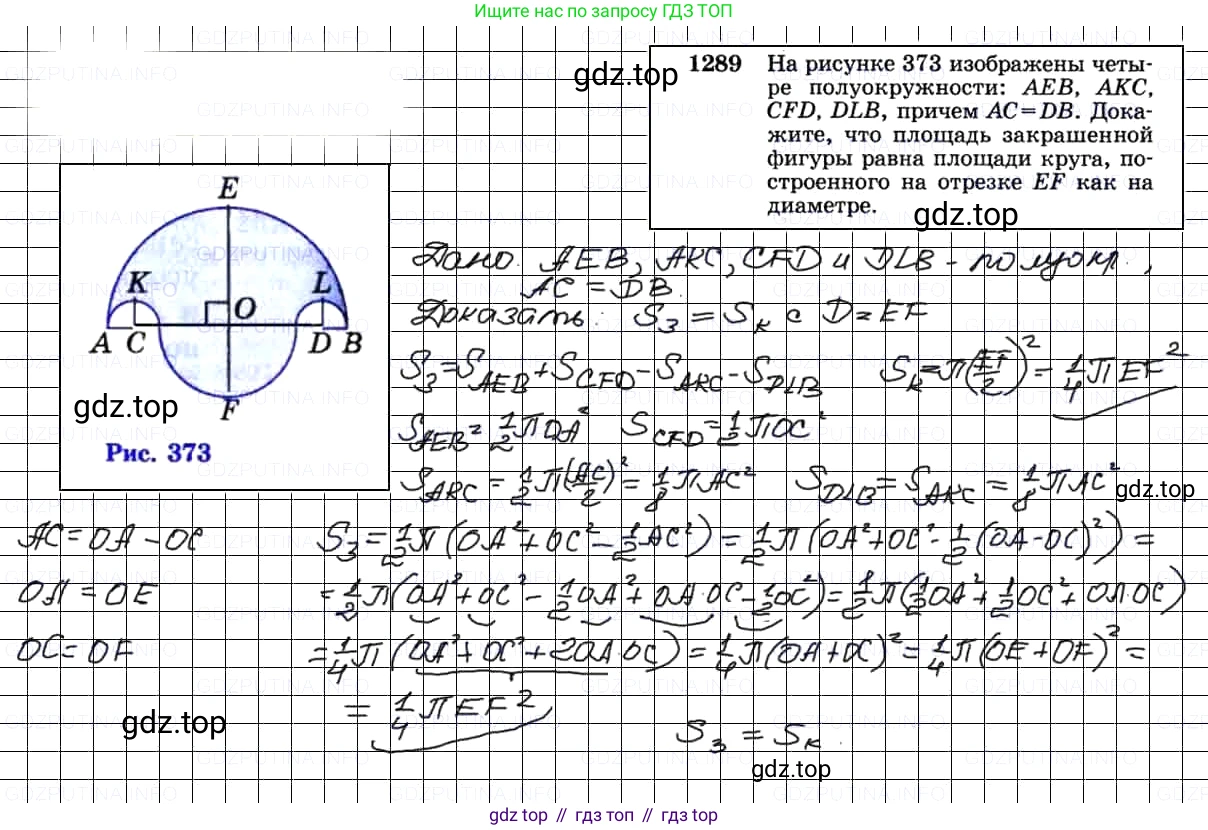 Ищите нас по запросу ГДЗ ТОП
1289 На рисунке 373 изображены четы-
ре полуокружности: AEB, AKC,
CFD, DLB, причем AC=DB. Дока-
жите, что площадь закрашенной
фигуры равна площади круга, по-
строенного на отрезке EF как на
диаметре.
gdz.top
gdz.top
E
K
L
O
A C D B
F
gdz.top
Рис. 373
Дано: AEB, AKC, CFD и DLB - полуокр.,
AC = DB.
Доказать: Sз = Sк с D = EF
Sз = S_AEB + S_CFD - S_AKC - S_DLB Sк = π(EF/2)² = 1/4 πEF²
S_AEB = 1/2 πOA² S_CFD = 1/2 πOC²
S_AKC = 1/2 π(AC/2)² = 1/8 πAC² S_DLB = S_AKC = 1/8 πAC²
gdz.top
AC = OA - OC Sз = 1/2 π(OA² + OC² - 1/2 AC²) = 1/2 π(OA² + OC² - 1/2 (OA - OC)²) =
OA = OE = 1/2 π(OA² + OC² - 1/2 OA² + OA·OC - 1/2 OC²) = 1/2 π(1/2 OA² + 1/2 OC² + OA·OC)
OC = OF = 1/4 π(OA² + OC² + 2OA·OC) = 1/4 π(OA + OC)² = 1/4 π(OE + OF)² =
= 1/4 πEF²
gdz.top
Sз = Sк.
gdz.top
gdz top // гдз топ // gdz top
GDZPUTINA.INFO